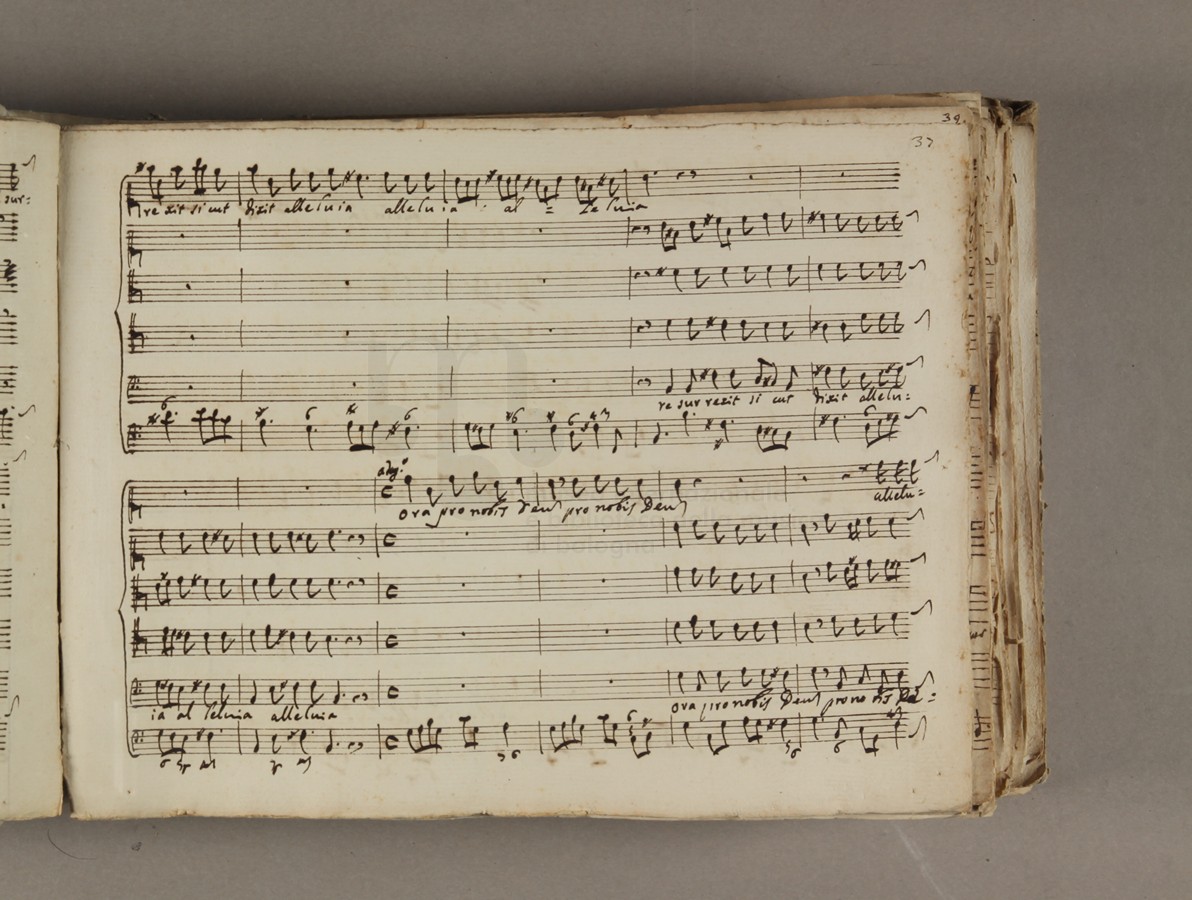 39.
37
sur=
re xit si cut dixit alleluia alleluia al = le luia
re sur rexit si cut dixit allelu=
adg.o
ora pro nobis Deus pro nobis Deus
allelu=
ia al leluia alleluia
ora pro nobis Deus pro no bis De=